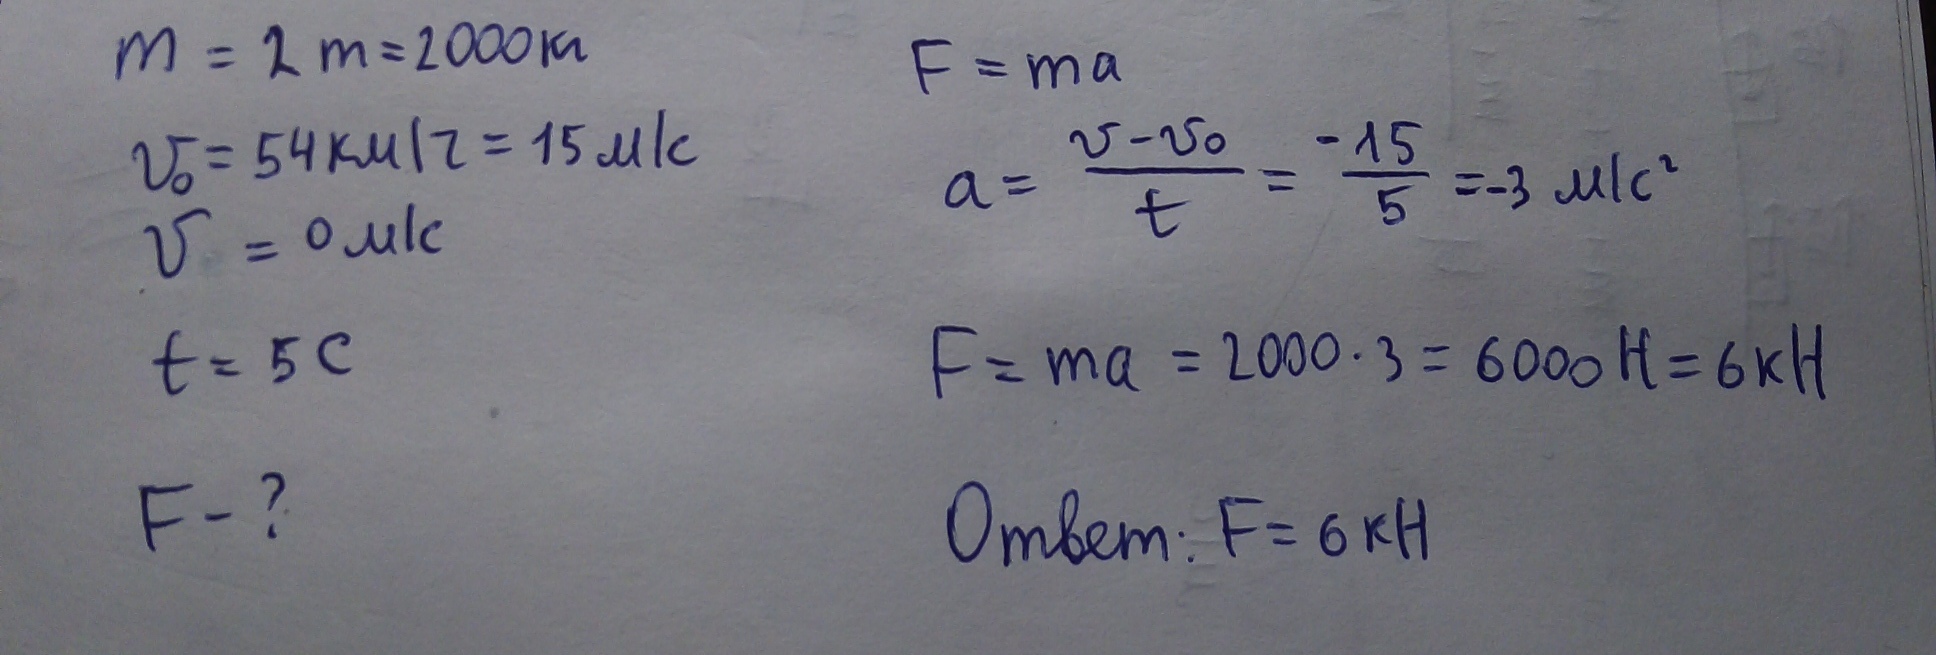 m = 2 т = 2000 кг
v₀ = 54 км/ч = 15 м/с
v = 0 м/с
t = 5 с
F - ?
F = ma
a = (v - v₀)/t = -15/5 = -3 м/с²
F = ma = 2000 · 3 = 6000 Н = 6 кН
Ответ: F = 6 кН